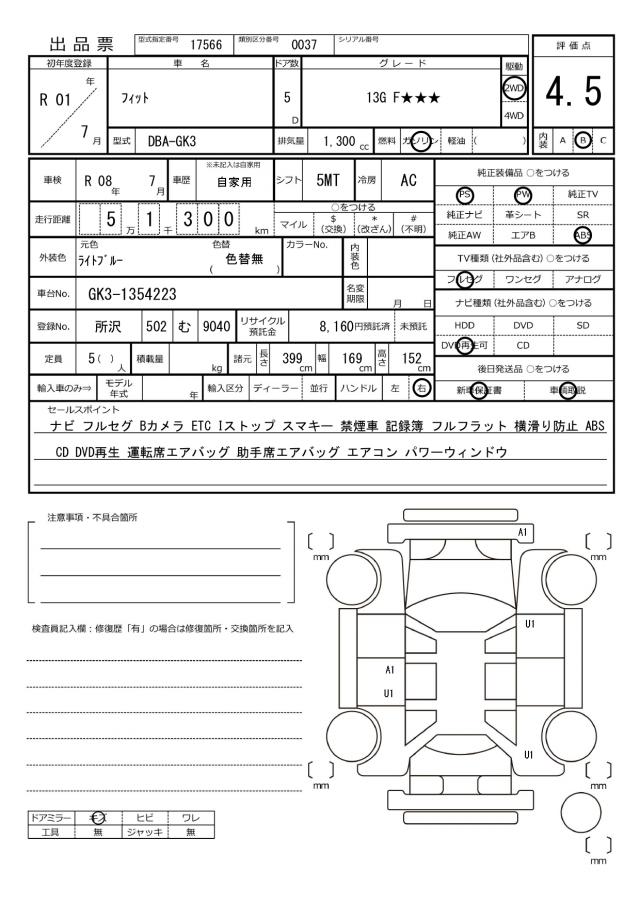 出品票 型式指定番号 17566 類別区分番号 0037 シリアル番号
評価点
4.5
内装 A B C
初年度登録 車名 ドア数 グレード 駆動
R 01 年 7 月 フィット 5 D 13G F★★★ 2WD 4WD
型式 DBA-GK3 排気量 1,300 cc 燃料 ガソリン 軽油 ( )
車検 R 08 年 7 月 車歴 ※未記入は自家用 自家用 シフト 5MT 冷房 AC
走行距離 5 万 1 千 3 0 0 km ○をつける
マイル $ (交換) * (改ざん) # (不明)
外装色 元色 ライトブルー 色替 ( 色替無 ) カラーNo. 内装色
車台No. GK3-1354223 名変期限 月 日
登録No. 所沢 502 む 9040 リサイクル預託金 8,160円預託済 未預託
定員 5 ( ) 人 積載量 kg 諸元 長さ 399 cm 幅 169 cm 高さ 152 cm
輸入車のみ⇒ モデル年式 年 輸入区分 ディーラー 並行 ハンドル 左 右
純正装備品 ○をつける
PS PW 純正TV
純正ナビ 革シート SR
純正AW エアB ABS
TV種類 (社外品含む) ○をつける
フルセグ ワンセグ アナログ
ナビ種類 (社外品含む) ○をつける
HDD DVD SD
DVD再生可 CD
後日発送品 ○をつける
新車保証書 車輌取説
セールスポイント
ナビ フルセグ Bカメラ ETC Iストップ スマキー 禁煙車 記録簿 フルフラット 横滑り防止 ABS
CD DVD再生 運転席エアバッグ 助手席エアバッグ エアコン パワーウィンドウ
注意事項・不具合箇所
検査員記入欄：修復歴「有」の場合は修復箇所・交換箇所を記入
A1
[ ] mm
[ ] mm
U1
A1
U1
U1
[ ] mm
[ ] mm
[ ] mm
ドアミラー キズ ヒビ ワレ
工具 無 ジャッキ 無